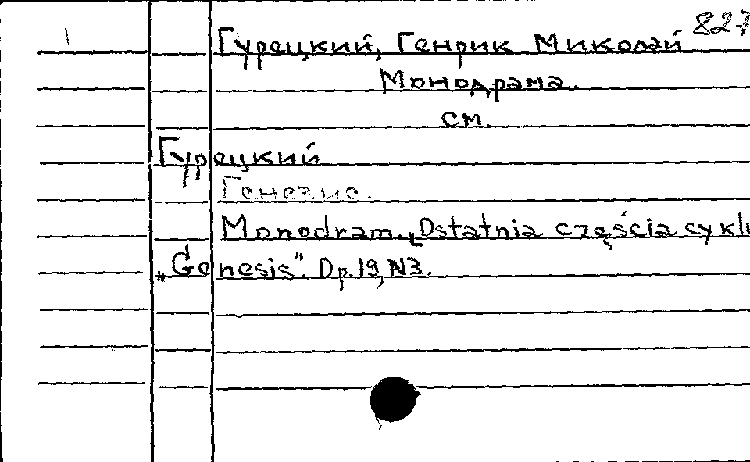 827
Гурецкий, Генрик Миколай
Монодрама.
см.
Гурецкий
Генезис.
Monodram. „Ostatnia częścia cyklu
„Genesis". Op. 19, N3.